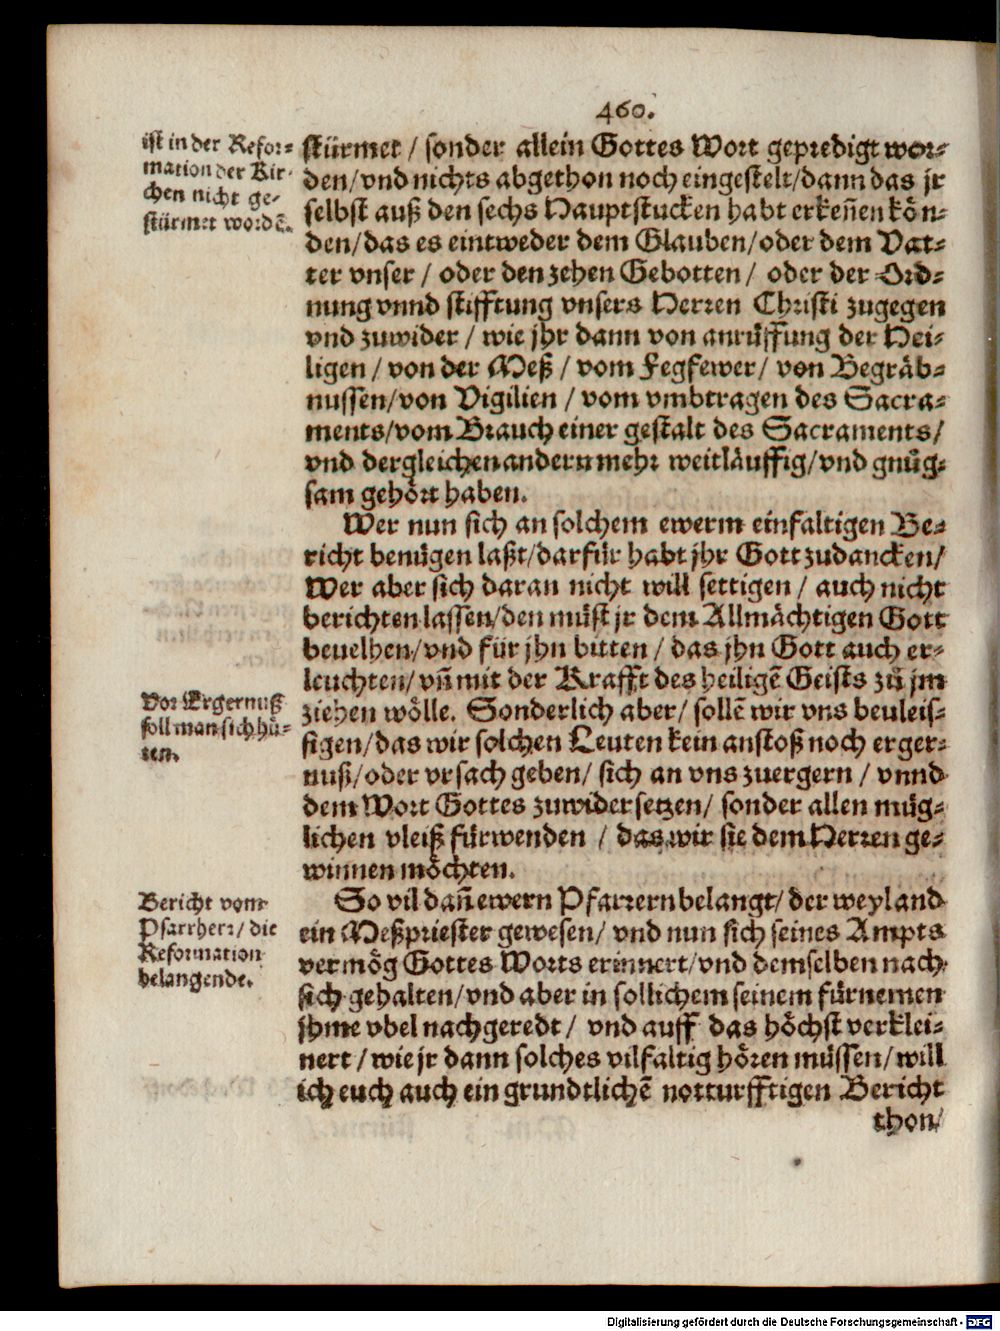 460.
ist in der Refor⸗
mation der Kir⸗
chen nicht ge⸗
stürmet wordẽ.
stürmet / sonder allein Gottes Wort gepredigt wor⸗
den/vnd nichts abgethon noch eingestelt/dann das jr
selbst auß den sechs Hauptstucken habt erkeñen kön⸗
den/das es eintweder dem Glauben/oder dem Vat⸗
ter vnser / oder den zehen Gebotten / oder der Ord⸗
nung vnnd stifftung vnsers Herren Christi zugegen
vnd zuwider / wie jhr dann von anrüffung der Hei⸗
ligen / von der Meß / vom Fegfewer/ von Begräb⸗
nussen/von Vigilien / vom vmbtragen des Sacra⸗
ments/vom Brauch einer gestalt des Sacraments/
vnd dergleichen andern mehr weitläuffig/vnd gnüg⸗
sam gehört haben.
Wer nun sich an solchem ewerm einfaltigen Be⸗
richt benügen laßt/darfür habt jhr Gott zudancken/
Wer aber sich daran nicht will settigen / auch nicht
berichten lassen/den müst jr dem Allmächtigen Gott
beuelhen/vnd für jhn bitten / das jhn Gott auch er⸗
leuchten/ vñ mit der Krafft des heiligẽ Geists zů jm
ziehen wölle. Sonderlich aber/ sollẽ wir vns beuleis⸗
sigen/das wir solchen Leuten kein anstoß noch erger⸗
nuß/oder vrsach geben/ sich an vns zuergern / vnnd
dem Wort Gottes zuwidersetzen/ sonder allen müg⸗
lichen vleiß fürwenden / das wir sie dem Herren ge⸗
winnen möchten.
Vor Ergernuß
soll man sich hü⸗
ten.
So vil dañ ewern Pfarrern belangt/ der weyland
ein Meßpriester gewesen/ vnd nun sich seines Ampts
vermög Gottes Worts erinnert/vnd demselben nach
sich gehalten/vnd aber in sollichem seinem fürnemen
jhme vbel nachgeredt / vnd auff das höchst verklei⸗
nert / wie jr dann solches vilfaltig hören müssen/ will
ich euch auch ein grundtlichẽ notturfftigen Bericht
thon/
Bericht vom
Pfarrherr/ die
Reformation
belangende.
Digitalisierung gefördert durch die Deutsche Forschungsgemeinschaft - DFG